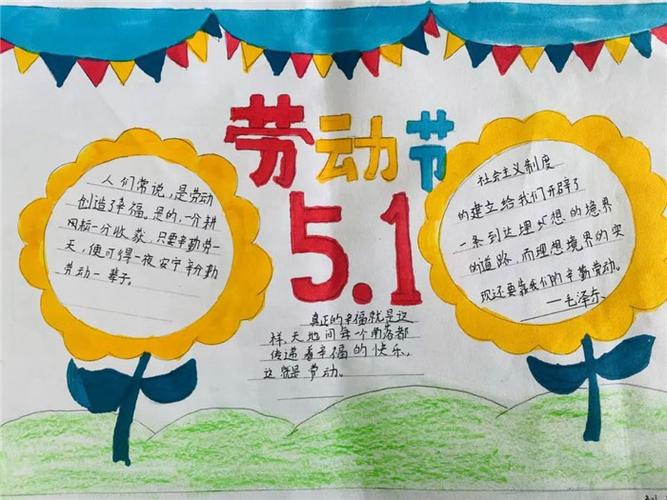 劳动节
5.1
人们常说,是劳动
创造了幸福。是的,一分耕
耘标一分收获,只要辛勤劳一
天,便可得一夜安宁辛勤
劳动一辈子。
社会主义制度
的建立给我们开辟了
一条到达理想的境界
的道路,而理想境界的实
现还要靠我们的辛勤劳动。
——毛泽东
真正的幸福就是这
样天地间每一个角落都
传递着幸福的快乐,
这就是劳动。